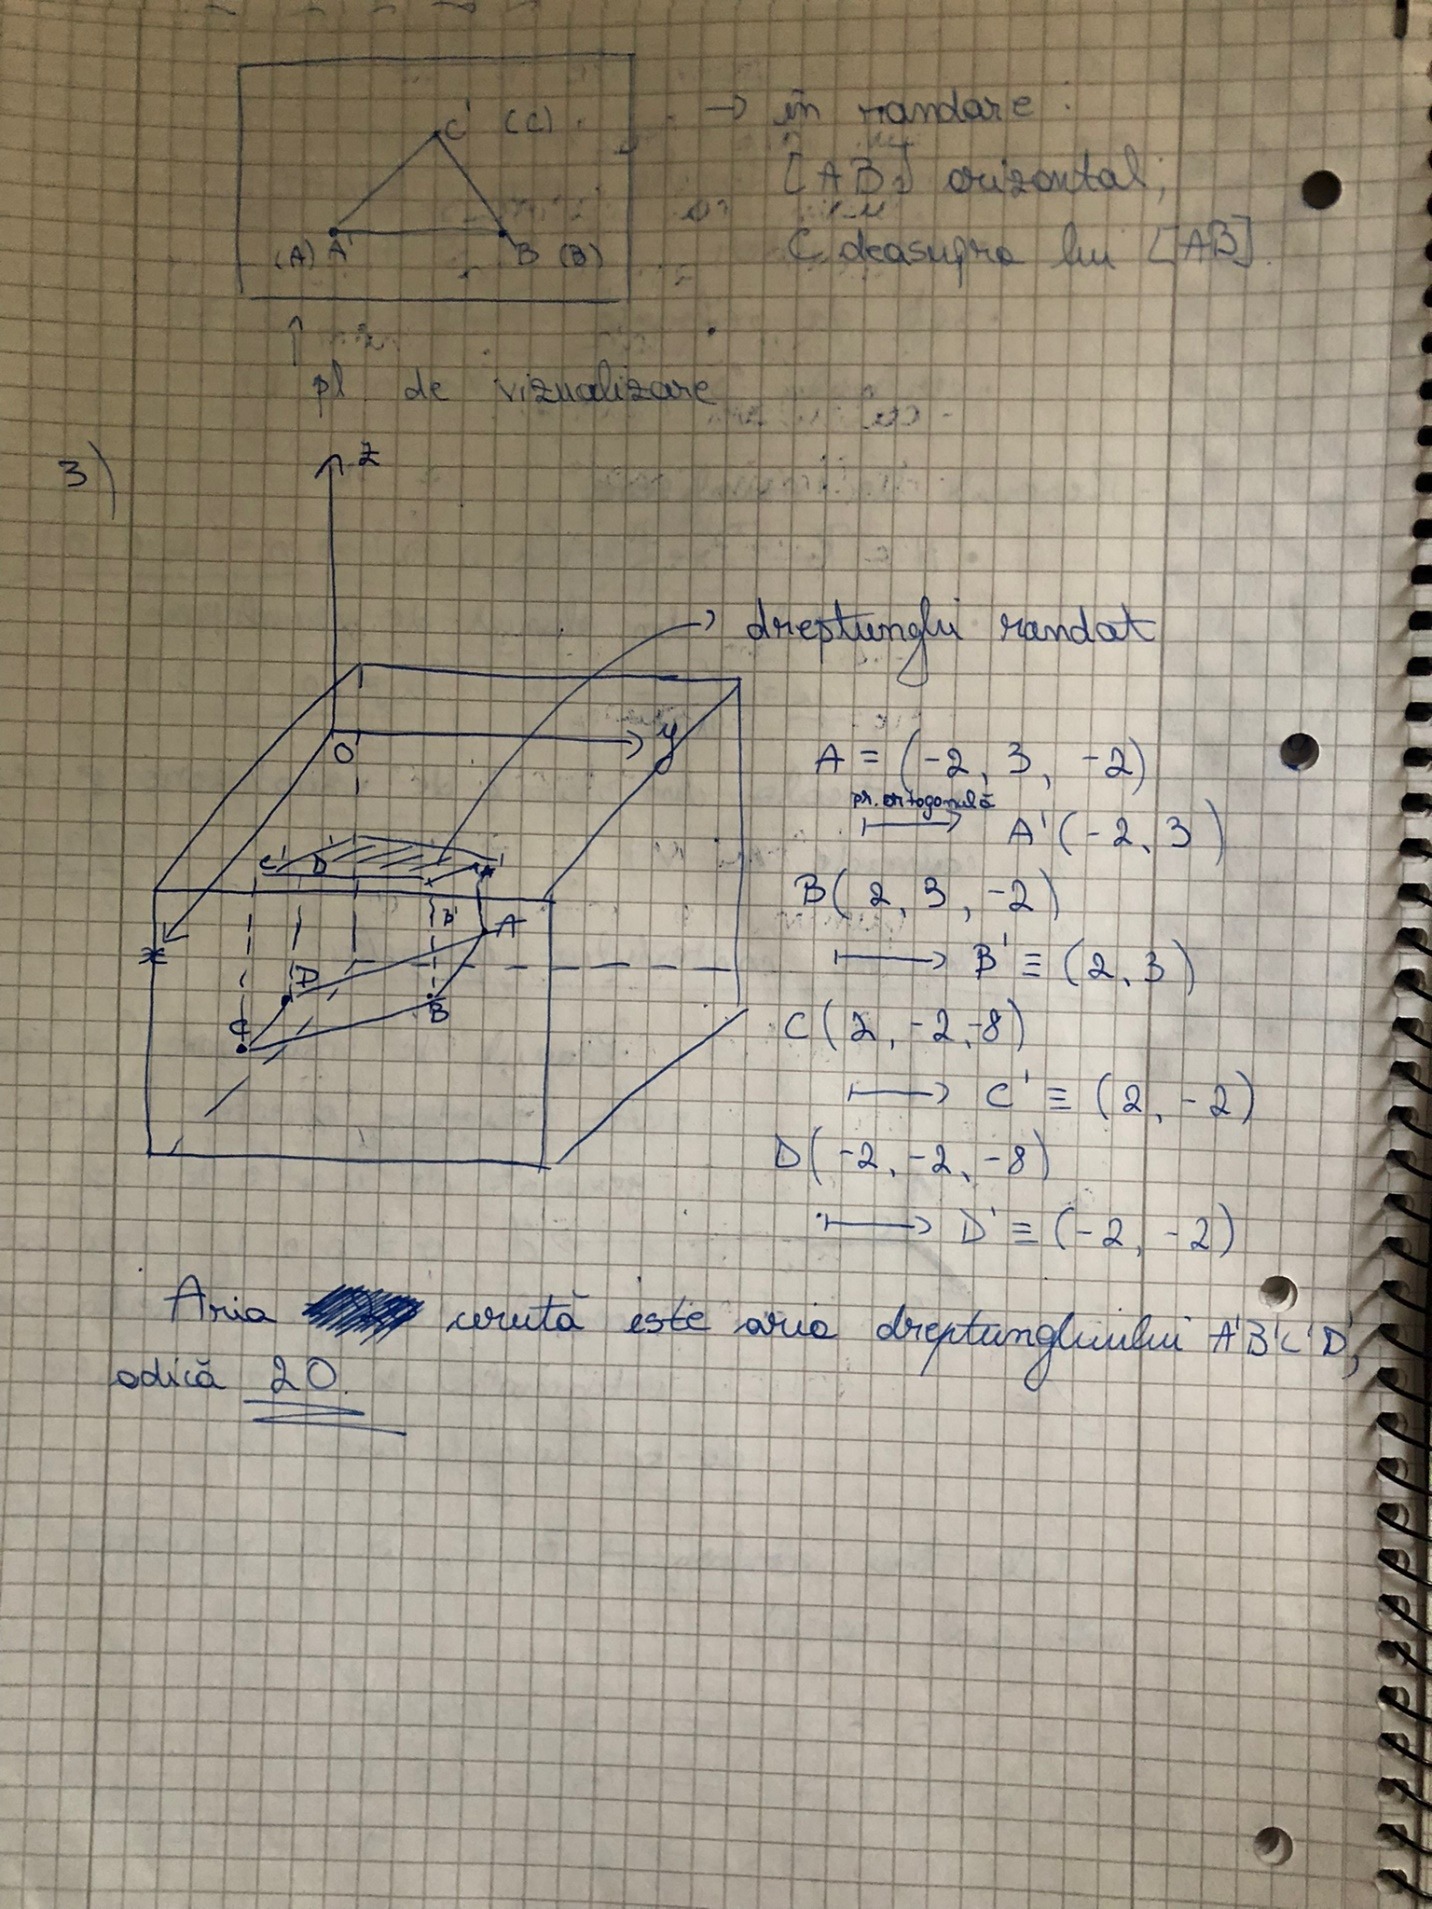 C' (C)
(A) A' B (B)
→ în randare:
[AB] orizontal,
C deasupra lui [AB].
↑
pl de vizualizare
3)
z
→ dreptunghi randat
O
y
C' D' A'
B'
A
D
B
C
x
A = (-2, 3, -2)
pr. ortogonală
⟼ A' (-2, 3)
B (2, 3, -2)
⟼ B' ≡ (2, 3)
C (2, -2, -8)
⟼ C' ≡ (2, -2)
D (-2, -2, -8)
⟼ D' ≡ (-2, -2)
Aria cerută este aria dreptunghiului A'B'C'D',
adică 20.